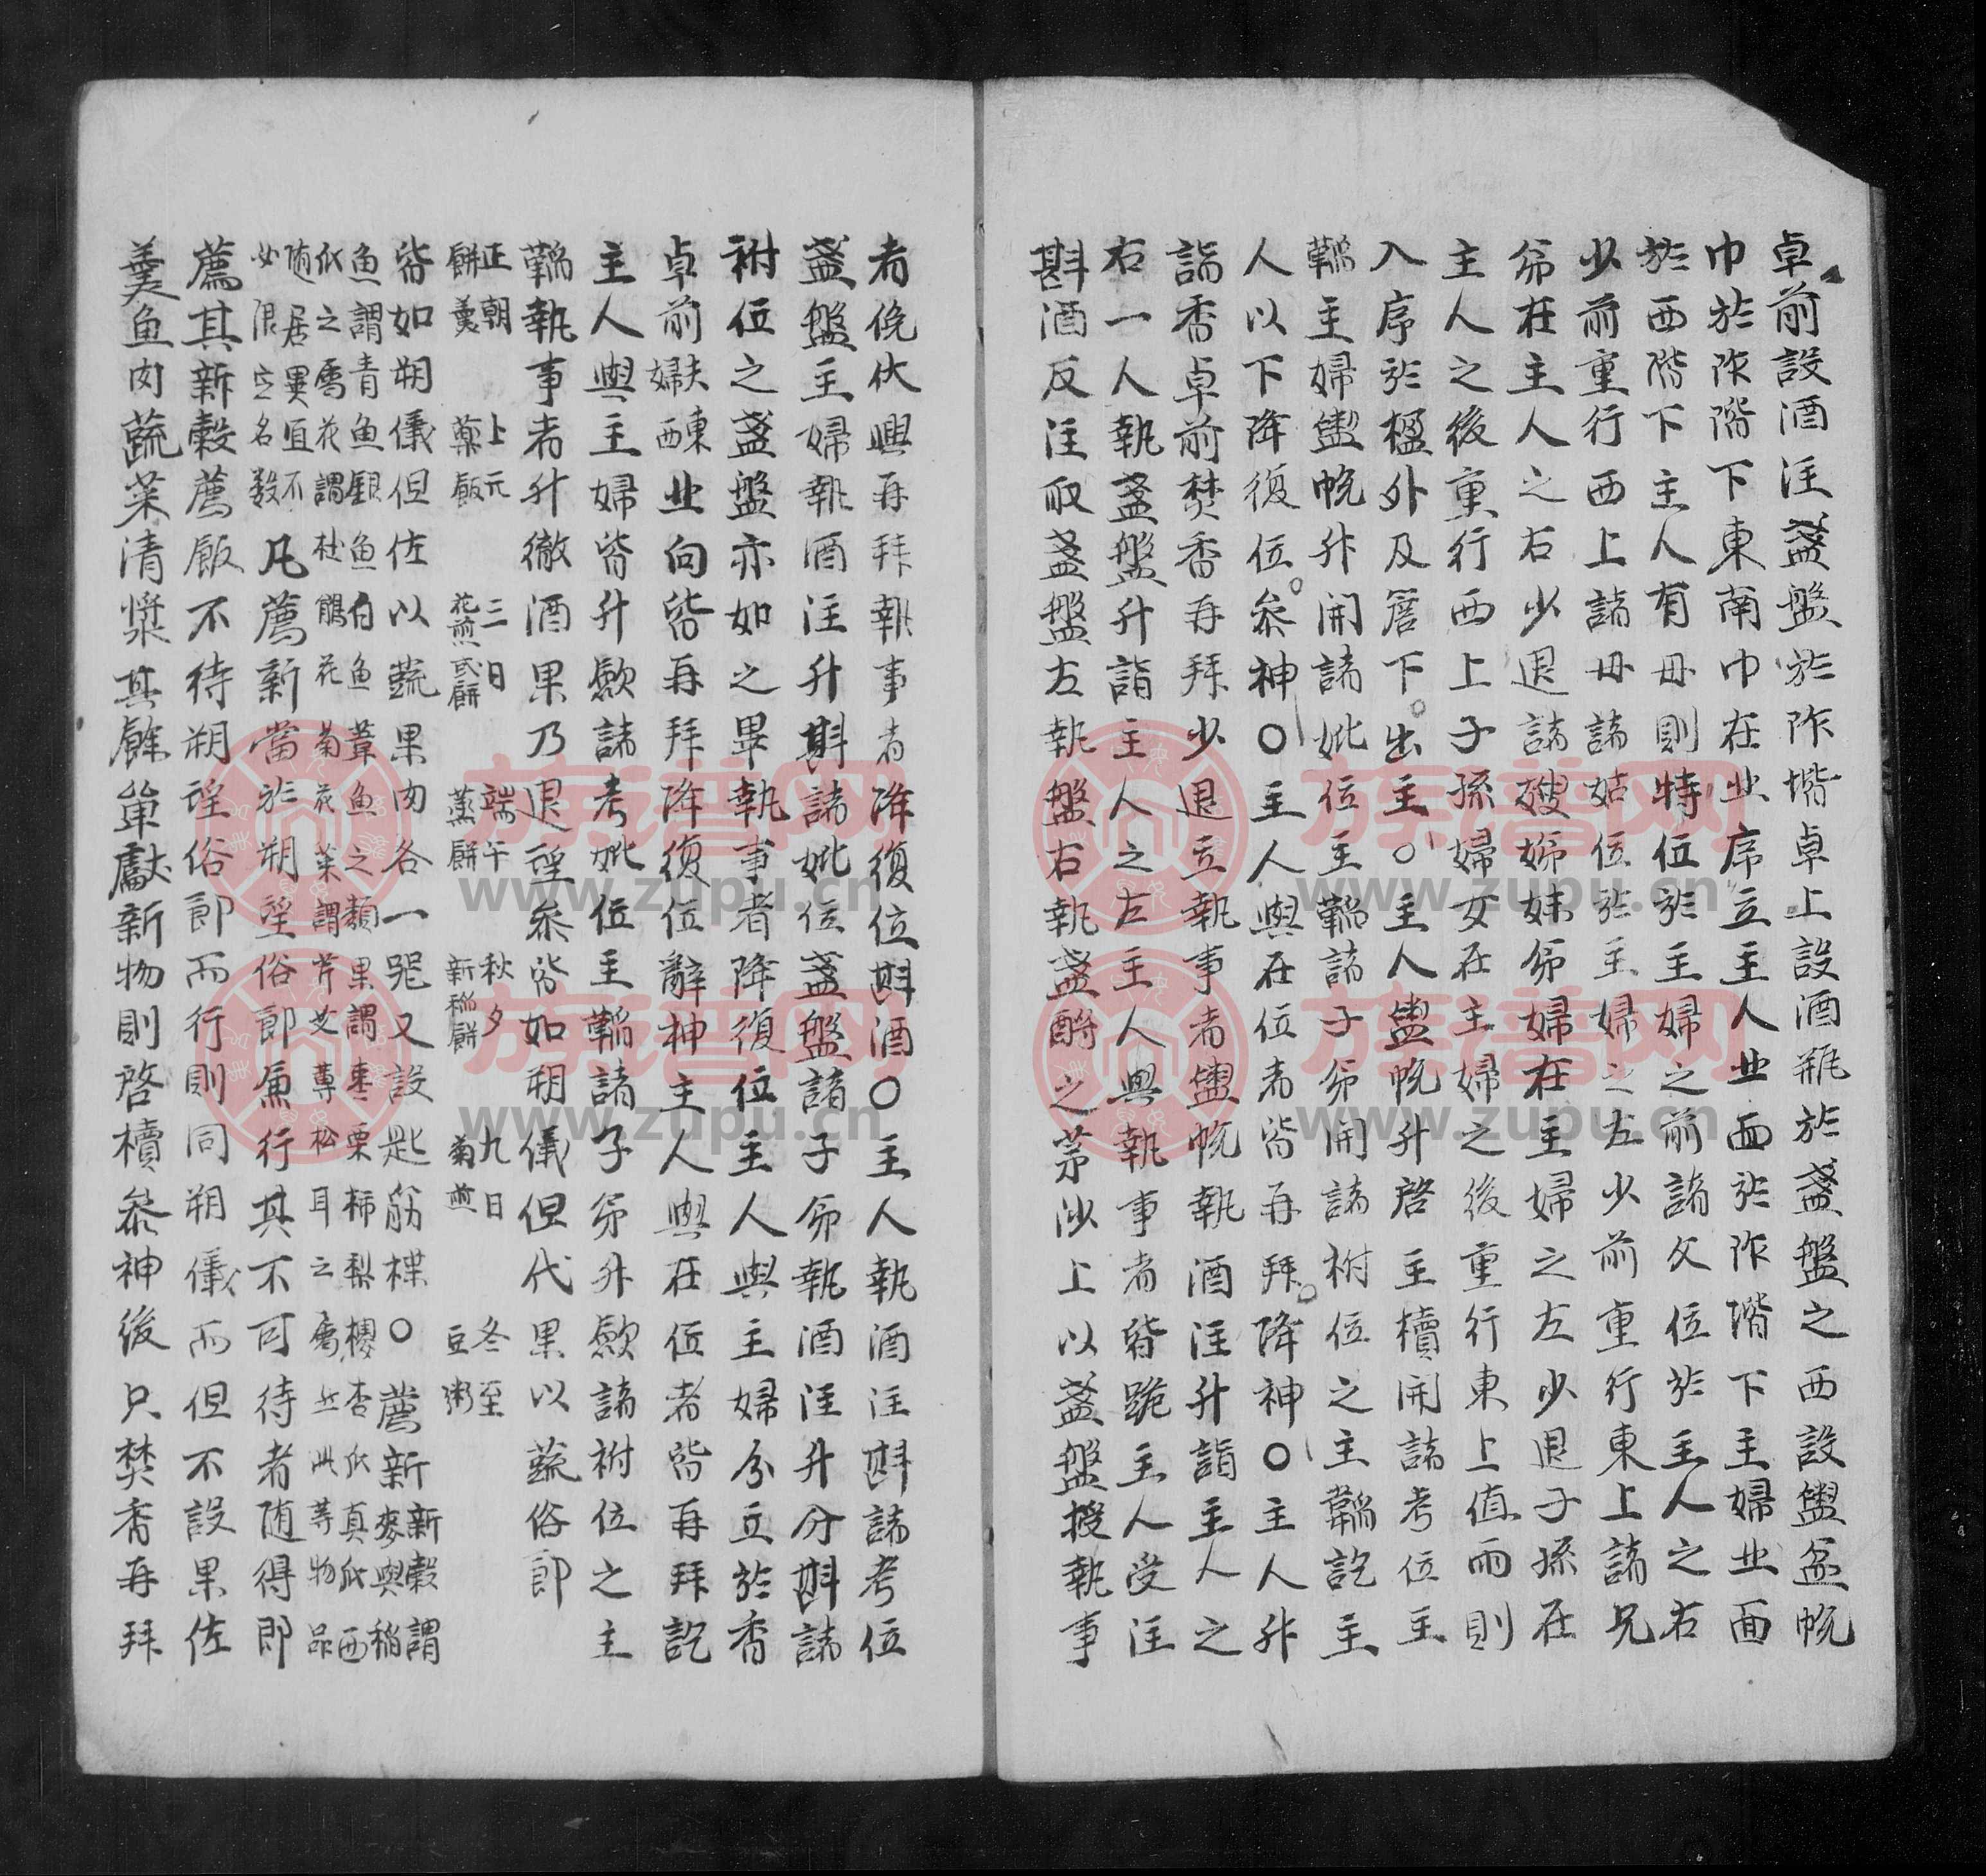 卓前設酒注盞盤於阼階卓上設酒瓶於盞盤之西設盥盆帨
巾於阼階下東南巾在北序立主人北面於阼階下主婦北面
於西階下主人有母則特位於主婦之前諸父位於主人之右
少前重行西上諸母諸姑位於主婦之左少前重行東上諸兄
弟在主人之右少退諸嫂姊妹弟婦在主婦之左少退子孫在
主人之後重行西上子孫婦女在主婦之後重行東上值雨則
入序於楹外及簷下出主○主人盥帨升啓主櫝開諸考位主
韜主婦盥帨升開諸妣位主韜諸子弟開諸祔位之主韜訖主
人以下降復位參神○主人與在位者皆再拜降神○主人升
詣香卓前焚香再拜少退立執事者盥帨執酒注升詣主人之
右一人執盞盤升詣主人之左主人與執事者皆跪主人受注
斟酒反注取盞盤左執盤右執盞酹之茅沙上以盞盤授執事
者俛伏興再拜執事者降復位斟酒○主人執酒注斟諸考位
盞盤主婦執酒注升斟諸妣位盞盤諸子弟執酒注升分斟諸
祔位之盞盤亦如之畢執事者降復位主人與主婦分立於香
卓前夫東婦西北向皆再拜降復位辭神主人與在位者皆再拜訖
主人與主婦皆升斂諸考妣位主韜諸子弟升斂諸祔位之主
韜執事者升徹酒果乃退望參皆如朔儀但代果以蔬俗節
正朝餠羹 上元藥飯 三日花煎艾餠 端午蒸餠 秋夕新稻餠 九日菊煎 冬至豆粥
皆如朔儀但佐以蔬果肉各一器又設匙筯楪○薦新新穀謂麥與稻
魚謂青魚銀魚白魚葦魚之類果謂棗栗柿梨櫻杏瓜真瓜西
瓜之屬花謂杜鵑花菊花菜謂芹艾蓴松耳之屬此等物品
隨居異宜不必限定名數凡薦新當於朔望俗節兼行其不可待者隨得即
薦其新穀薦飯不待朔望俗節而行則同朔儀而但不設果佐
羹魚肉蔬菜清漿其餘單獻新物則啓櫝參神後只焚香再拜
族谱网
www.zupu.cn
族谱网
www.zupu.cn
族谱网
www.zupu.cn
族谱网
www.zupu.cn